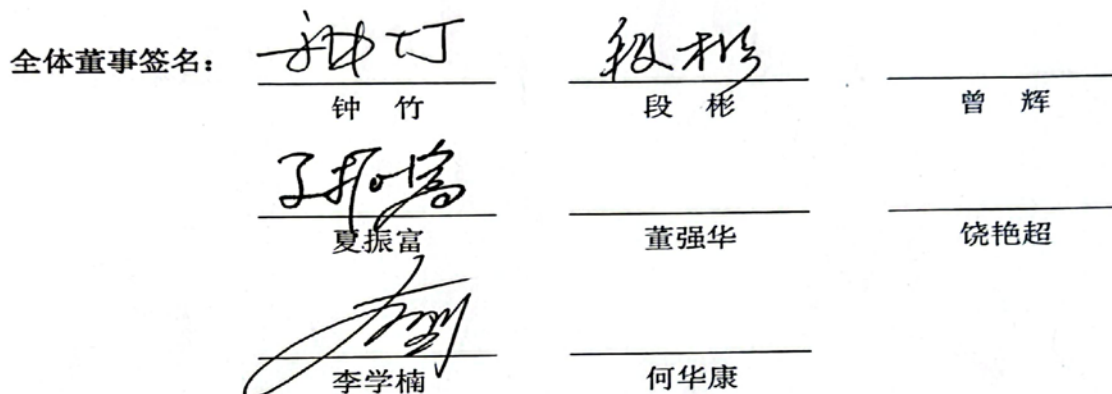 全体董事签名： 钟竹 段彬
钟 竹 段 彬 曾 辉
夏振富 董强华 饶艳超
李学楠 何华康